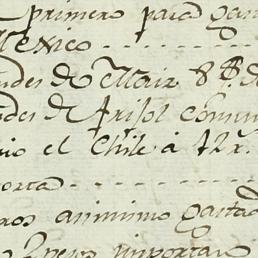 primero para gas
Mexico
des de Maiz 8 d
des de Frisol comu
io el Chile à 12 r.
porta
nos animimo gasta
2 pesos importan